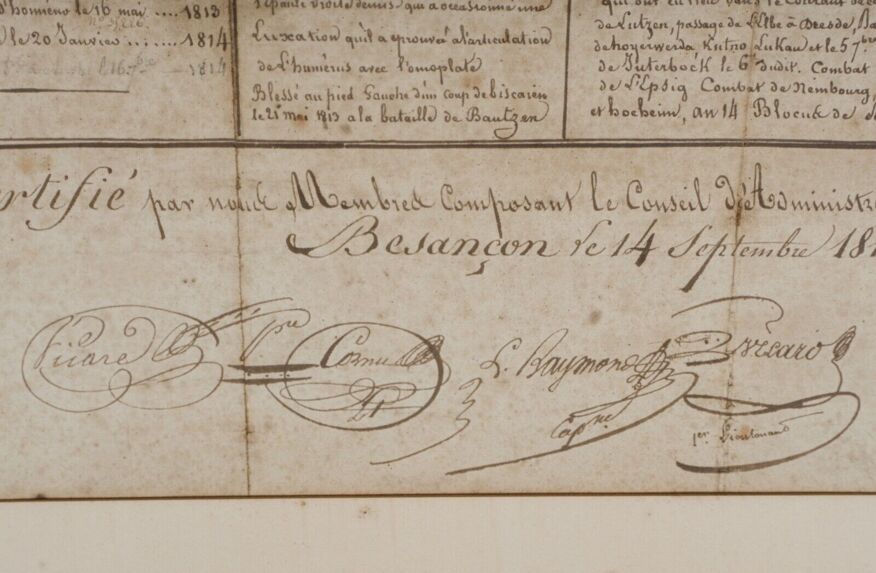 d'homiéno le 16 mai .... 1813
le 20 Janvier ...... 1814
le 16 7bre 1814
l'épaule droite demis qui a occasionné une
Luxation qu'il a éprouvée a l'articulation
de L'humérus avec l'omoplate
Blessé au pied Gauche d'un coup de biscaïen
le 21 mai 1813 a la bataille de Bautzen
qui ont eu lieu dans le Courant de
de Lutzen, passage de L'Elbe à Dresde, Ba
de hoyerwerda Kutno Lukau et le 5 7bre
de Juterbock le 6 dudit. Combat
de L'Epsig Combat de Nembourg,
et hocheim, an 14 Blocus de
ertifié par nous Membres Composant le Conseil d'Administra
Besançon le 14 Septembre 181
Picard
Cornu
Lt
L. Raymond
Capne
1er Lieutenant